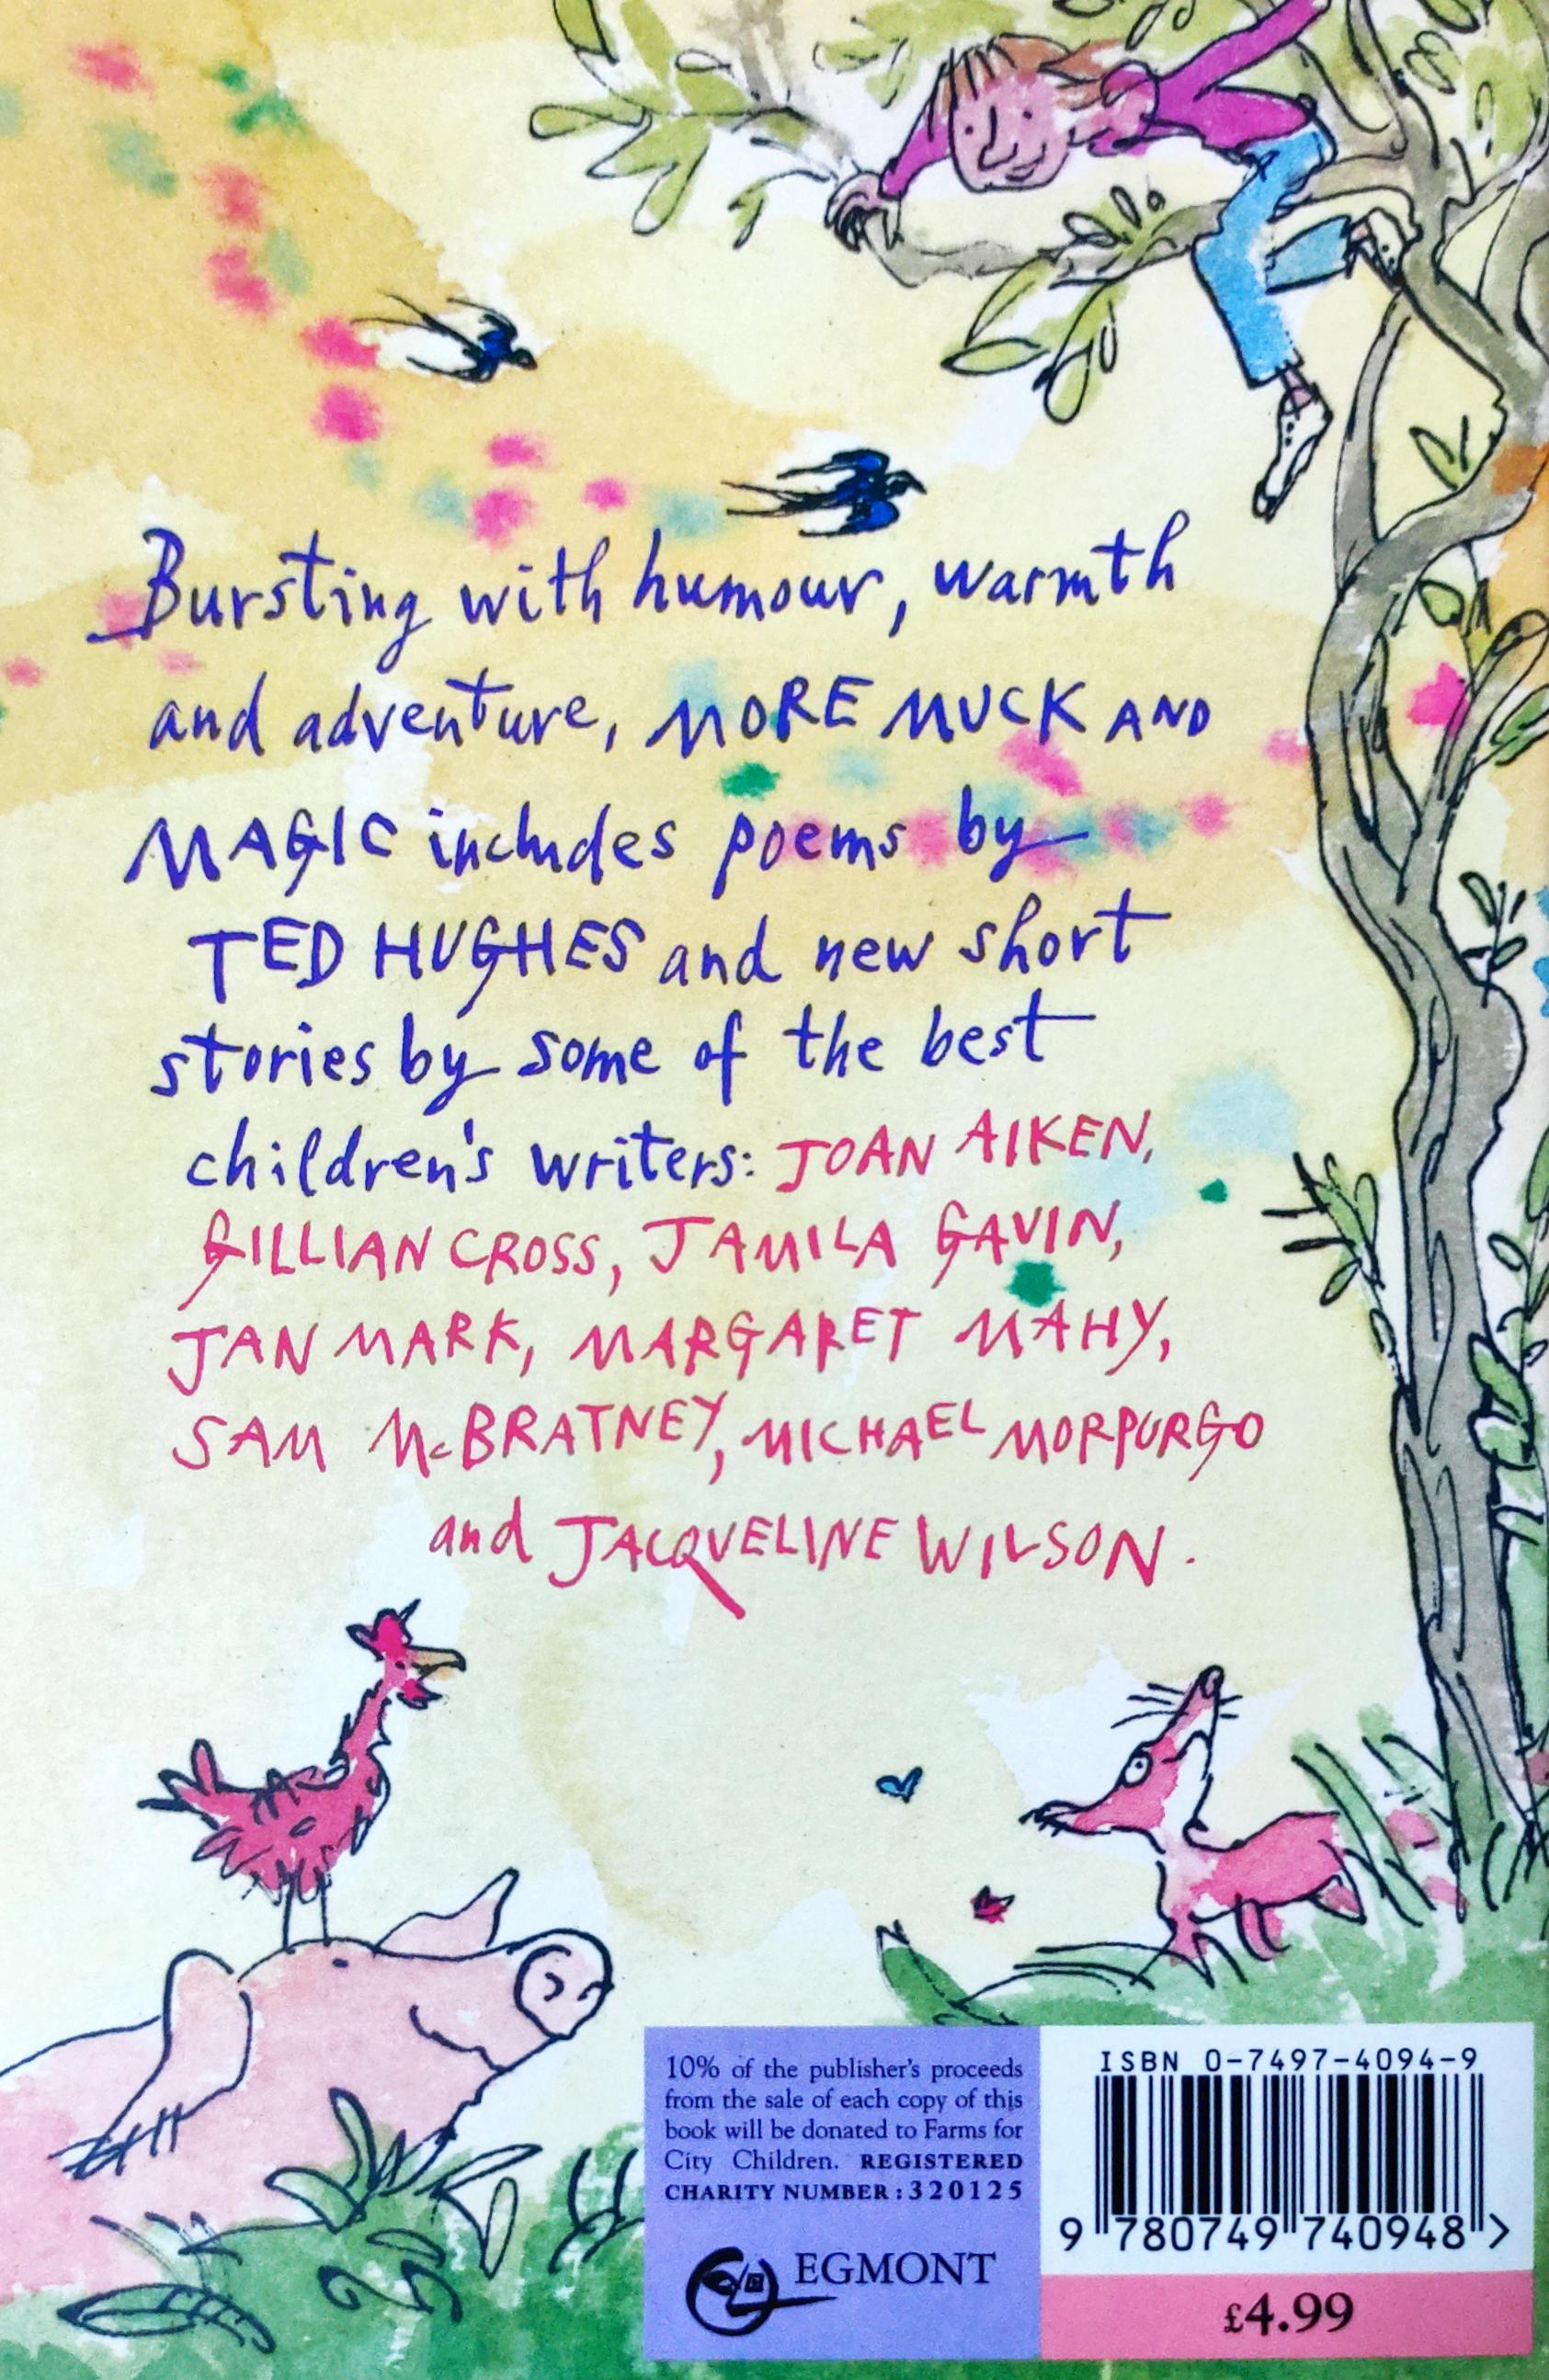 Bursting with humour, warmth
and adventure, MORE MUCK AND
MAGIC includes poems by
TED HUGHES and new short
stories by some of the best
children's writers: JOAN AIKEN,
GILLIAN CROSS, JAMILA GAVIN,
JAN MARK, MARGARET MAHY,
SAM McBRATNEY, MICHAEL MORPURGO
and JACQUELINE WILSON.
10% of the publisher's proceeds
from the sale of each copy of this
book will be donated to Farms for
City Children. REGISTERED
CHARITY NUMBER: 320125
EGMONT
ISBN 0-7497-4094-9
9 780749 740948 >
£4.99